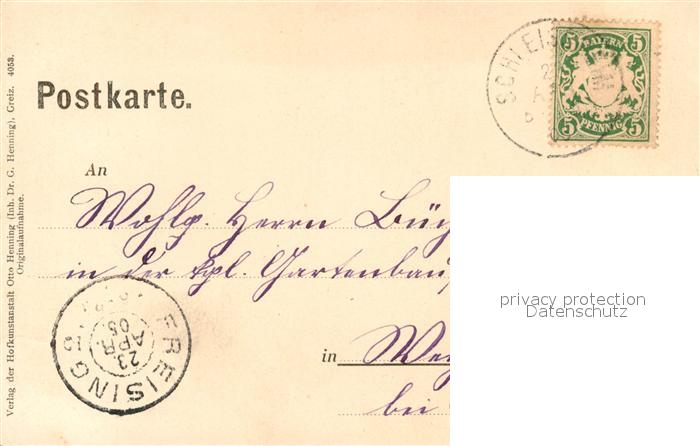 Postkarte.
SCHLEIS
5 BAYERN 5
5 PFENNIG 5
An
Wohlg. Herrn Büch
in der kgl. Gartenbau
in
bei
FREISING
23
APR
05
Verlag der Hofkunstanstalt Otto Henning (Inh. Dr. G. Henning), Greiz. 4053.
Originalaufnahme.
privacy protection
Datenschutz